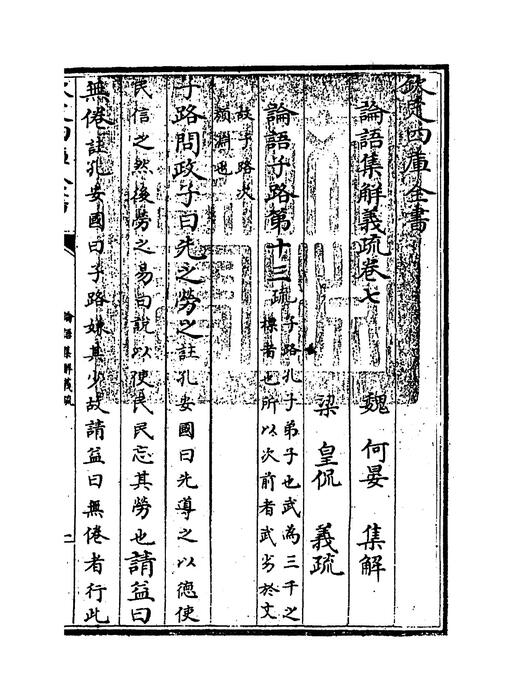 欽定四庫全書
論語集解義疏卷七
魏 何晏 集解
梁 皇侃 義疏
論語子路第十三疏子路孔子弟子也武為三千之
標者也所以次前者武劣於文
故子路次
顔淵也
子路問政子曰先之勞之註孔安國曰先導之以德使
民信之然後勞之易曰說以使民民忘其勞也請益曰
無倦註孔安國曰子路嫌其少故請益曰無倦者行此
論語集解義疏